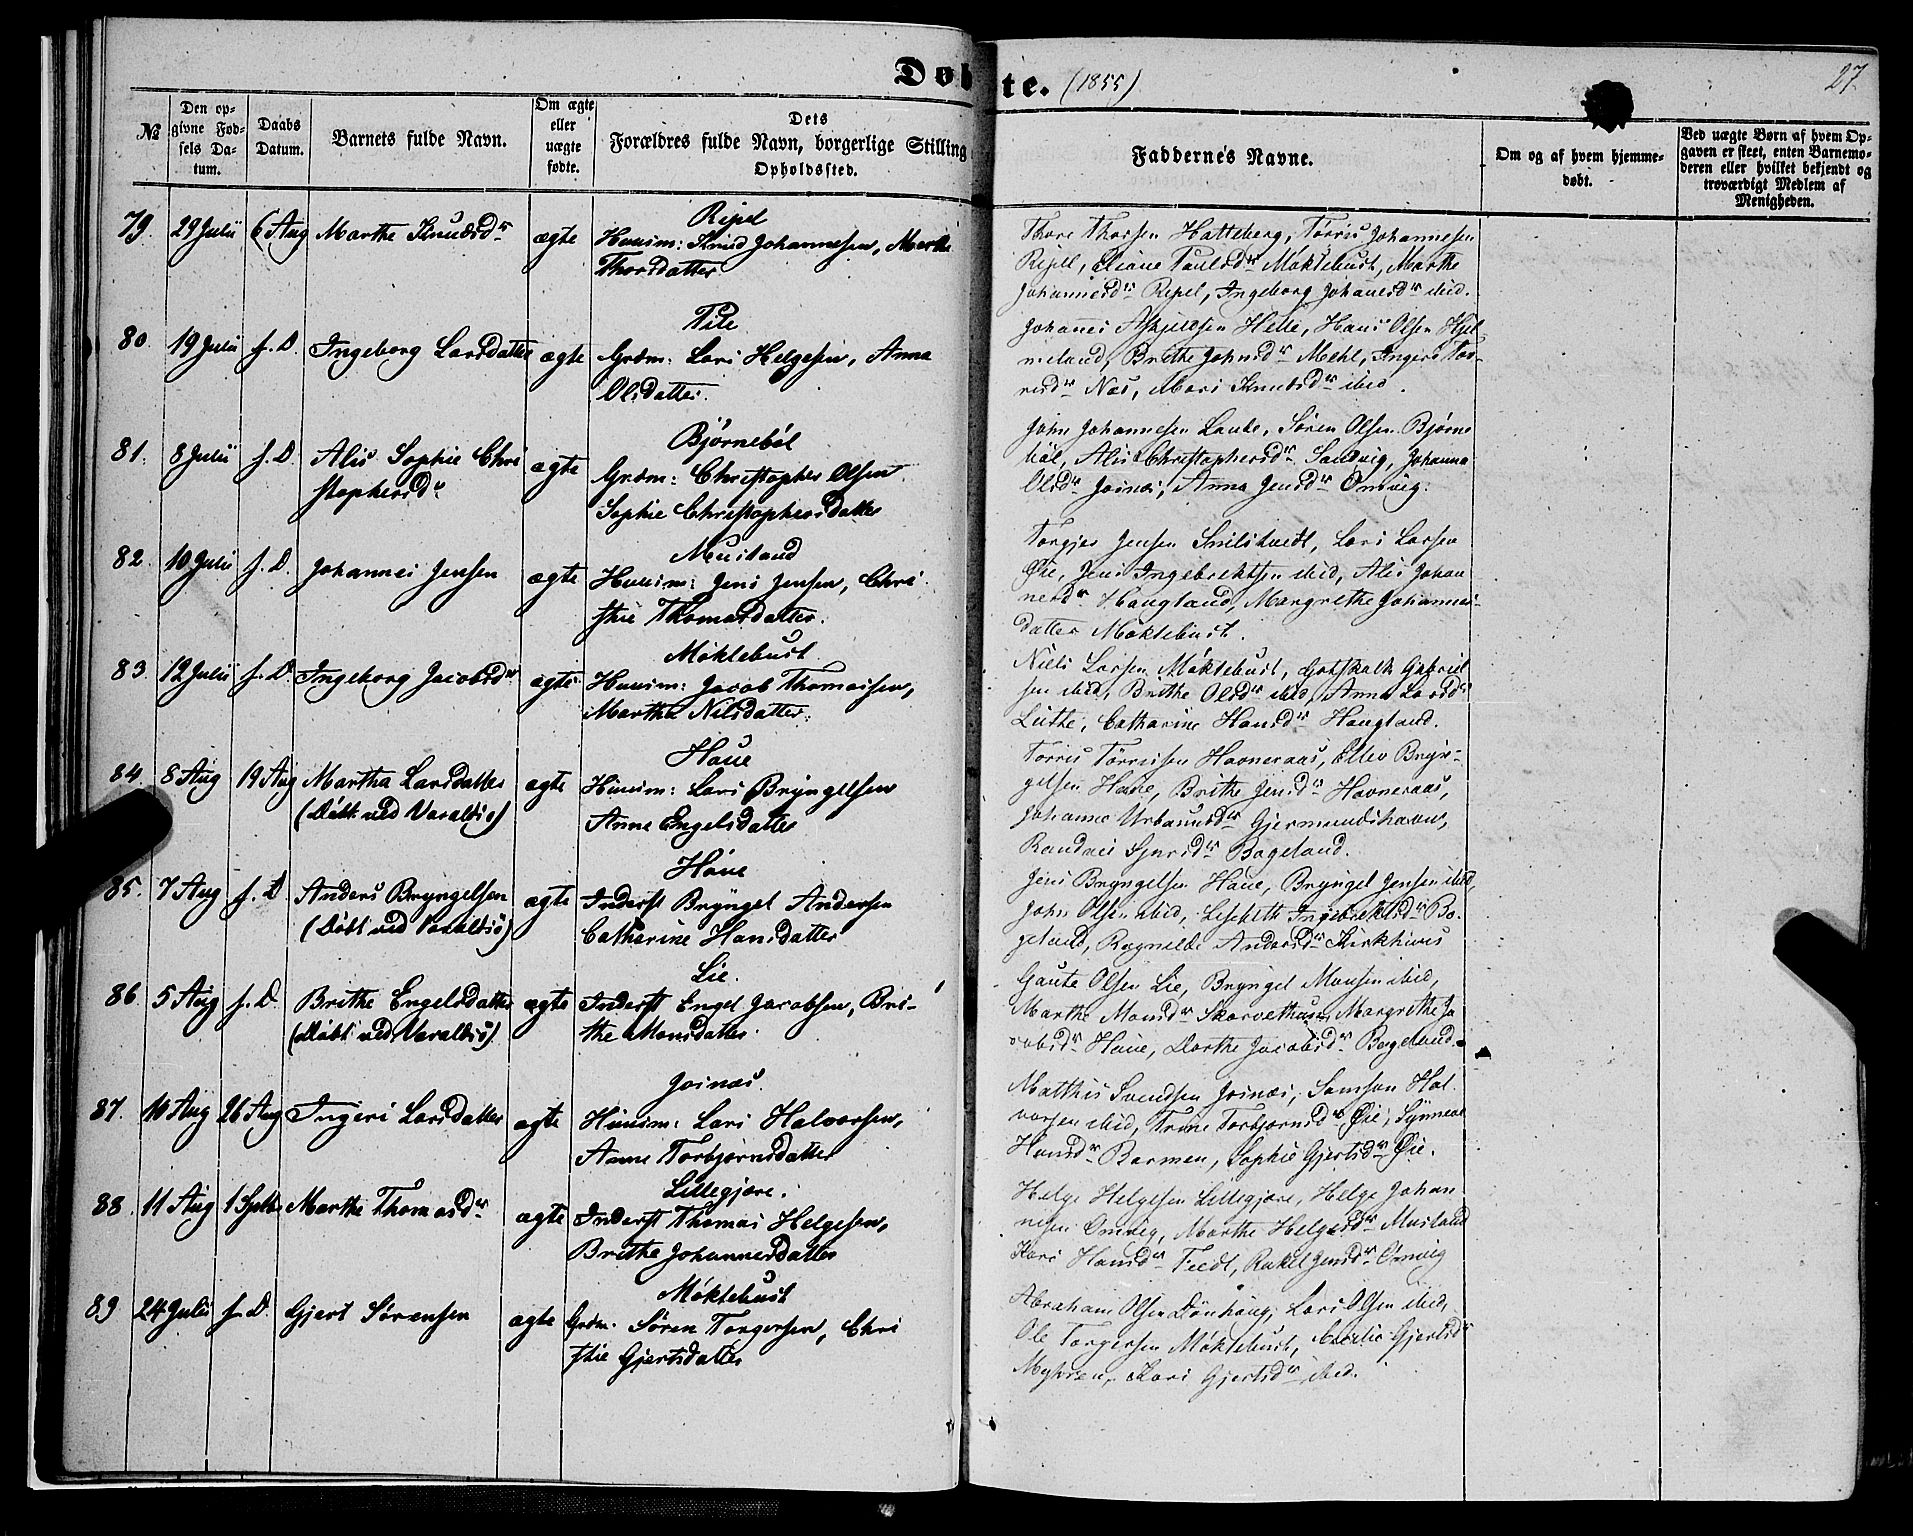 Døbte. (1855)
27.
№
Den op-
givne Fød-
sels Da-
tum.
Daabs
Datum.
Barnets fulde Navn.
Om ægte
eller
uægte
fødte.
Dets
Forældres fulde Navn, borgerlige Stilling
Opholdssted.
Faddernes Navne.
Om og af hvem hjemme-
døbt.
Ved uægte Børn af hvem Op-
gaven er skeet, enten Barnemo-
deren eller hvilket bekjendt og
troværdigt Medlem af
Menigheden.
79. 29 Julii 6 Aug Marthe Knudsdr ægte
Ripel
Huusm: Knud Johannesen, Marthe
Thorsdatter
Thore Thorsen Hatteberg, Tørris Johannesen
Ripel, Paulsdr Møklebust, Marthe
Johannesdr Ripel, Ingeborg Johanesdr ibid.
80. 19 Julii f. D. Ingeborg Larsdatter ægte
Tite
Grdm: Lars Helgesen, Anna
Olsdatter.
Johannes Askjeldsen Helle, Hans Olsen Hjel-
meland, Brithe Johnsdr Mehl, Ingeri Tor-
resdr Næs, Mari Knutsdr ibid.
81. 8 Julii f. D. Alis Sophie Chri
stophersdr
ægte
Bjørnebøl
Grdm: Christopher Olsen
Sophie Christophersdatter
John Johannesen Laute, Søren Olsen Bjørne
bøl, Alis Christophersdr Sandvig, Johanna
Olsdr Joinæs, Anna Jensdr Omvig.
82. 10 Julii f. D. Johannes Jensen ægte
Musland
Huusm: Jens Jensen, Chri
stie Thomasdatter.
Torgjer Jensen Snilstvedt, Lars Larsen
Øie, Jens Ingebrektsen ibid, Alis Johan
nesdr Haugland, Margrethe Johannes-
datter Møklebust.
83. 12 Julii f. D. Ingeborg Jacobsdr ægte
Møklebust
Huusm: Jacob Thomassen,
Martha Nilsdatter.
Niels Larsen Møklebust, Gotskalk Gabriel
sen ibid, Brithe Olsdr ibid, Anna Larsdr
Luthe, Catharine Hansdr Haugland.
84. 8 Aug 19 Aug Martha Larsdatter
(Døbt ved Varaldsø)
ægte
Haue
Huusm: Lars Bryngelsen
Anne Engelsdatter
Torris Torrisen Havneraas, Ellev Bryn-
gelsen Haue, Brithe Jensdr Havneraas,
Johanne Urbanusdr Gjermundshavn,
Randvei Sjursdr Bogeland.
85. 7 Aug f. D. Anders Bryngelsen
(Døbt ved Varaldsø)
ægte
Haue
Inderst Bryngel Andersen
Catharine Hansdatter
Jens Bryngelsen Haue, Bryngel Jensen ibid,
John Olsen ibid, Lisebeth Ingebrektsdr Bo-
geland, Ragnilde Andersdr Kirkhuus
86. 5 Aug f. D. Brithe Engelsdatter
(Døbt ved Varaldsø)
ægte
Lie.
Inderst Engel Jacobsen, Bri-
the Monsdatter.
Gaute Olsen Lie, Bryngel Monsen ibid,
Marthe Monsdr Skorvethuus, Margrethe Ja
cobsdr Haue, Dorthe Jacobsdr Bogeland.
87. 10 Aug 26 Aug Ingeri Larsdatter ægte
Joinæs.
Huusm: Lars Halvorsen,
Anne Torbjørnsdatter
Matthis Svendsen Joinæs, Samson Hal
vorsen ibid, Trine Torbjørnsdr Øie, Synneva
Hansdr Barmen, Sophie Gjertsdr Øie.
88. 11 Aug 1 Septbr Marthe Thomasdr ægte
Lillegjære.
Inderst Thomas Helgesen,
Brithe Johannesdatter
Helge Helgesen Lillegjære, Helge Johan
nesen Omvig, Marthe Helgesdr Musland
Kari Hansdr Tvedt, Rakel Jensdr Omvig
89 24 Julii f. D. Gjert Sørensen ægte
Møklebust
Grdm. Søren Torgersen, Chri
stie Gjertsdatter
Abraham Olsen Dønhaug, Lars Olsen ibid,
Ole Torgersen Møklebust, Cecilie Gjertsdr
Myhren, Kari Gjertsdr ibid.